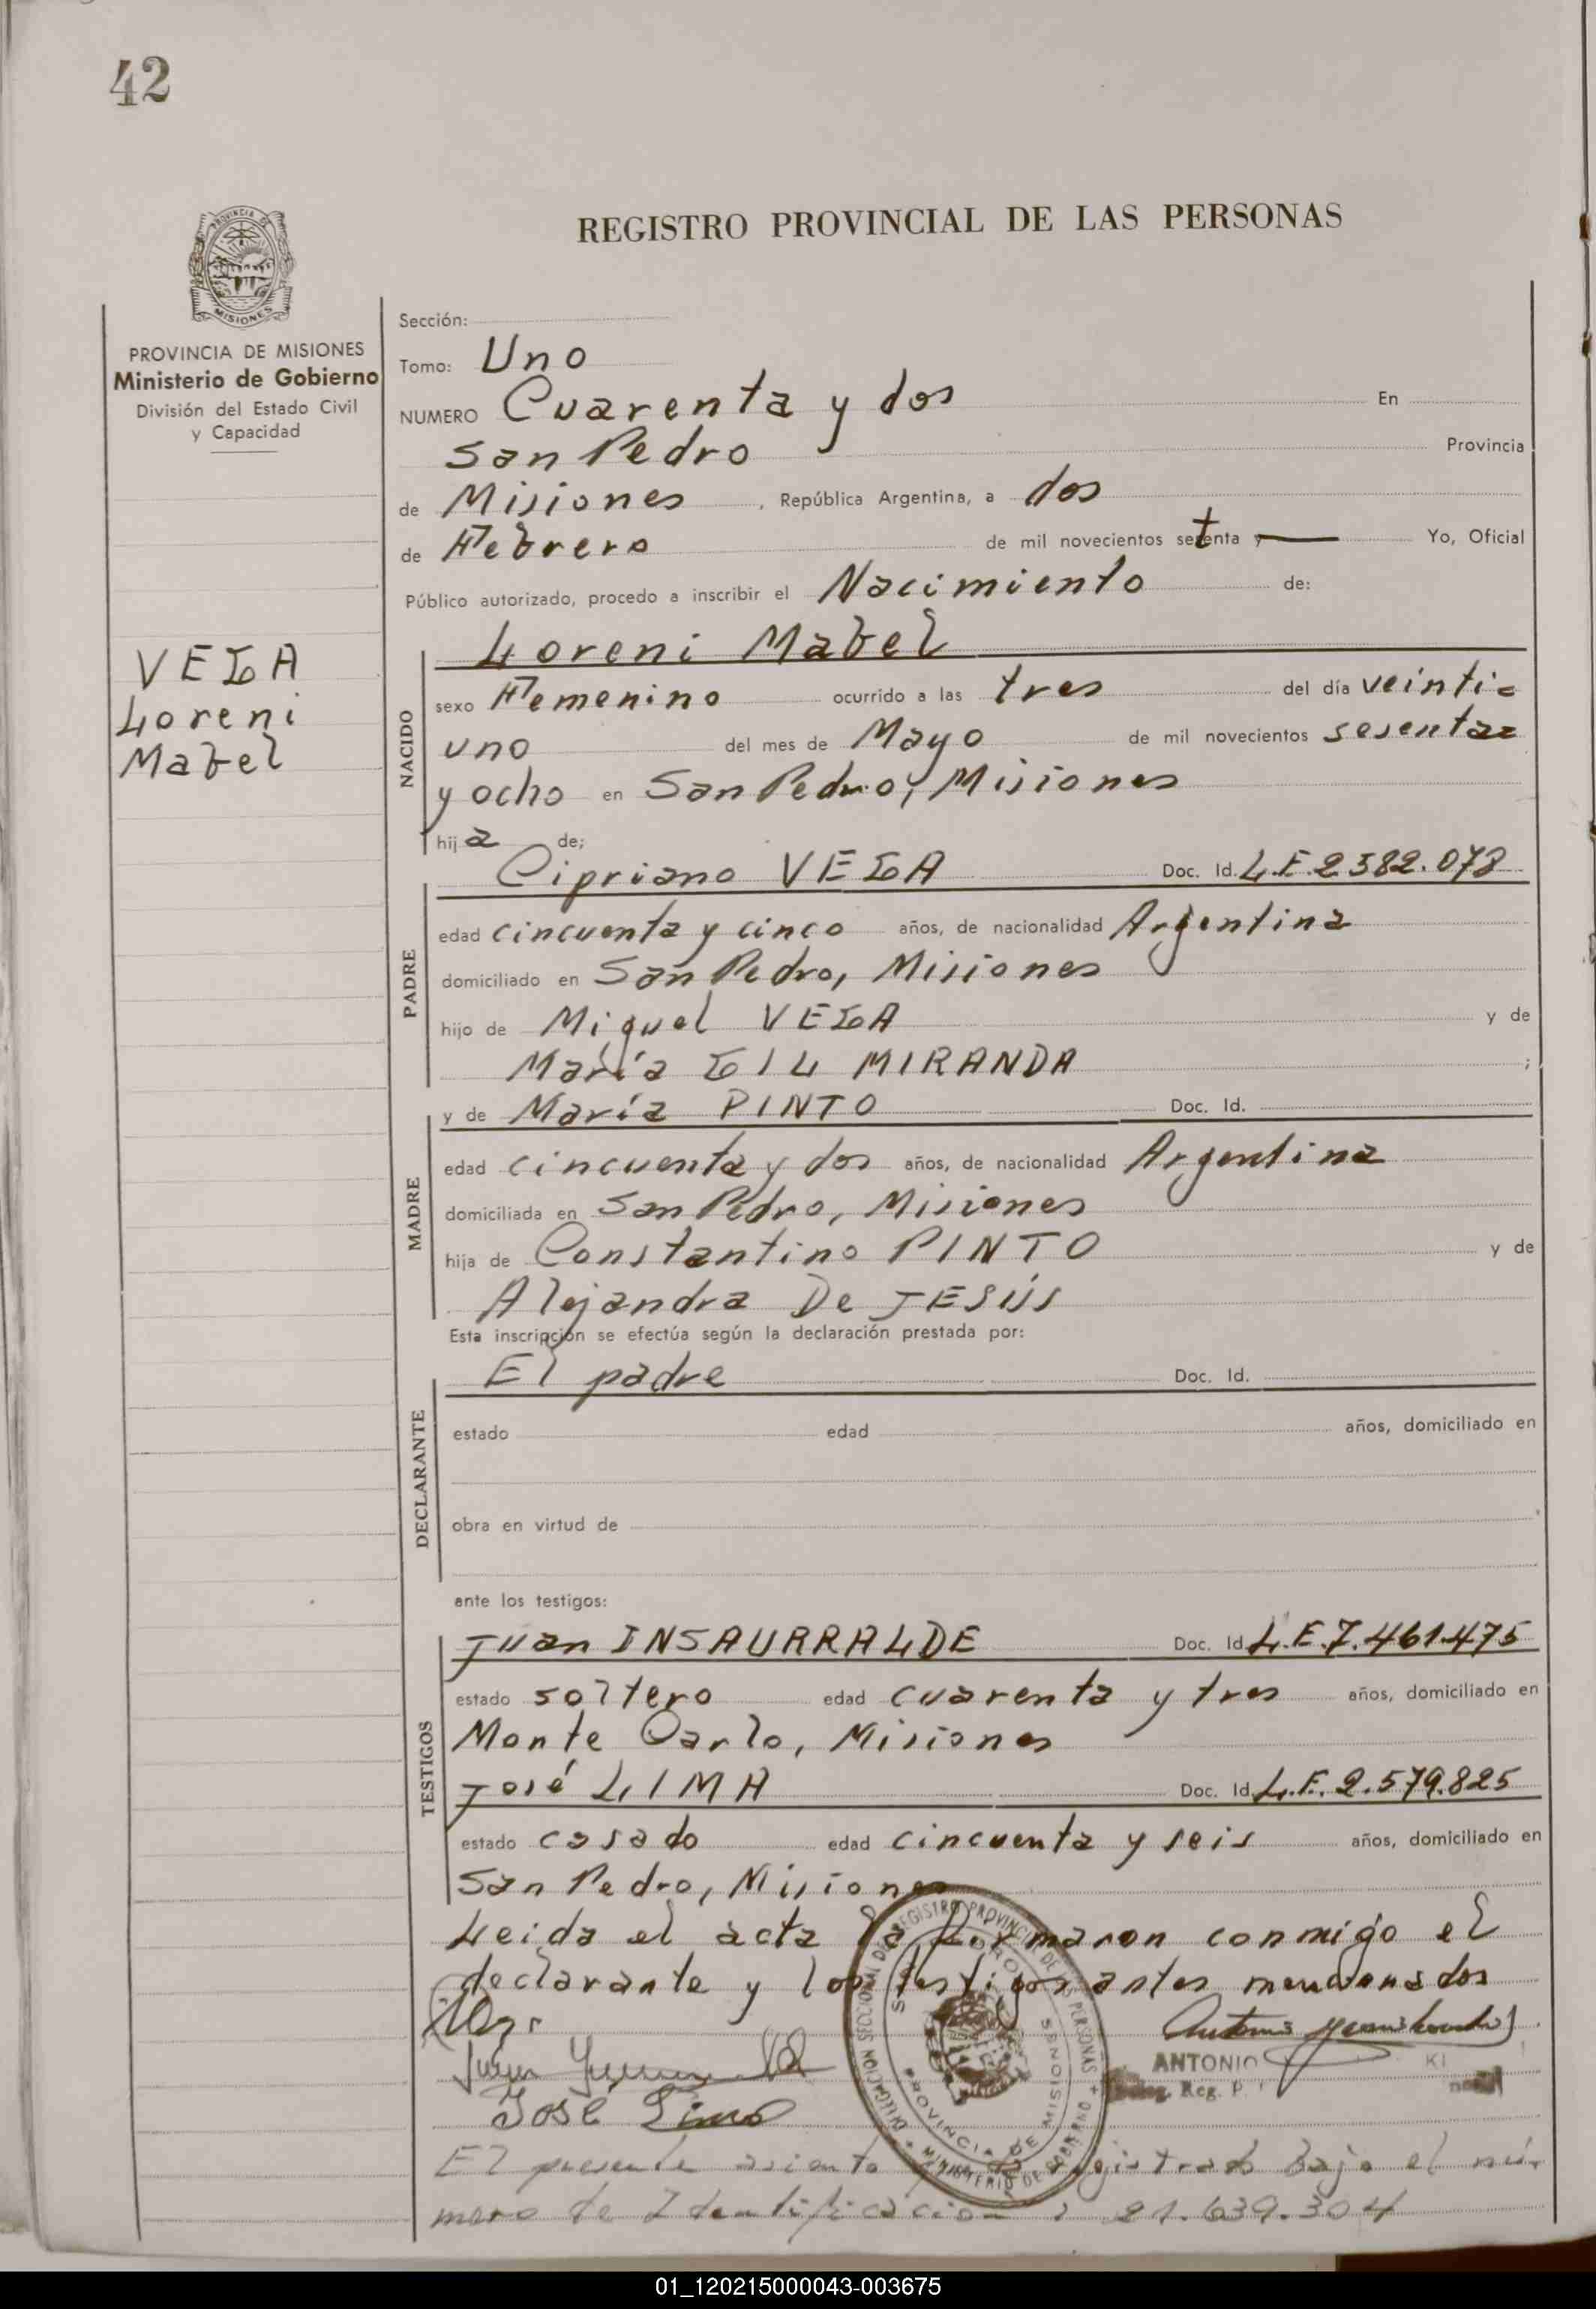 42
REGISTRO PROVINCIAL DE LAS PERSONAS
PROVINCIA DE MISIONES
MISIONES
PROVINCIA DE MISIONES
Ministerio de Gobierno
División del Estado Civil
y Capacidad
VEGA
Loreni
Mabel
Sección:
Tomo: Uno
NUMERO Cuarenta y dos En
San Pedro Provincia
de Misiones, República Argentina, a dos
de Febrero de mil novecientos setenta y — Yo, Oficial
Público autorizado, procedo a inscribir el Nacimiento de:
Loreni Mabel
NACIDO
sexo Femenino ocurrido a las tres del día veinti=
uno del mes de Mayo de mil novecientos sesenta=
y ocho en San Pedro, Misiones
hija de;
Cipriano VEGA Doc. Id. L.E.2382.078
PADRE
edad cincuenta y cinco años, de nacionalidad Argentina
domiciliado en San Pedro, Misiones
hijo de Miguel VEGA y de
María GIL MIRANDA ;
y de María PINTO Doc. Id.
MADRE
edad cincuenta y dos años, de nacionalidad Argentina
domiciliada en San Pedro, Misiones
hija de Constantino PINTO y de
Alejandra De JESÚS
Esta inscripción se efectúa según la declaración prestada por:
El padre Doc. Id.
DECLARANTE
estado edad años, domiciliado en
obra en virtud de
ante los testigos:
Juan INSAURRALDE Doc. Id. L.E.7.461.475
TESTIGOS
estado soltero edad cuarenta y tres años, domiciliado en
Monte Carlo, Misiones
José LIMA Doc. Id. L.E.2.579.825
estado casado edad cincuenta y seis años, domiciliado en
San Pedro, Misiones
Leida el acta la firmaron conmigo el
declarante y los testigos antes mencionados
DELEGACION SECCIONAL DEL REGISTRO PROVINCIAL DE LAS PERSONAS
MINISTERIO DE GOBIERNO
PROVINCIA DE MISIONES
Antonio
ANTONIO KI
Reg. P.
Juan
José Lima
El presente asiento registrado bajo el nú-
mero de Identificación: 21.639.304
01_120215000043-003675